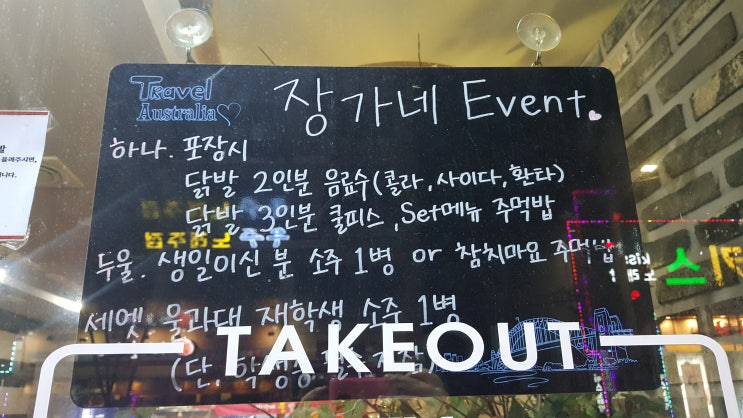 Travel
Australia
장가네 Event
하나. 포장시
닭발 2인분 음료수(콜라, 사이다, 환타)
닭발 3인분 쿨피스, Set메뉴 주먹밥
두울. 생일이신 분 소주 1병 or 참치마요 주먹밥
세엣. 울과대 재학생 소주 1병
TAKEOUT
(단, 학생증